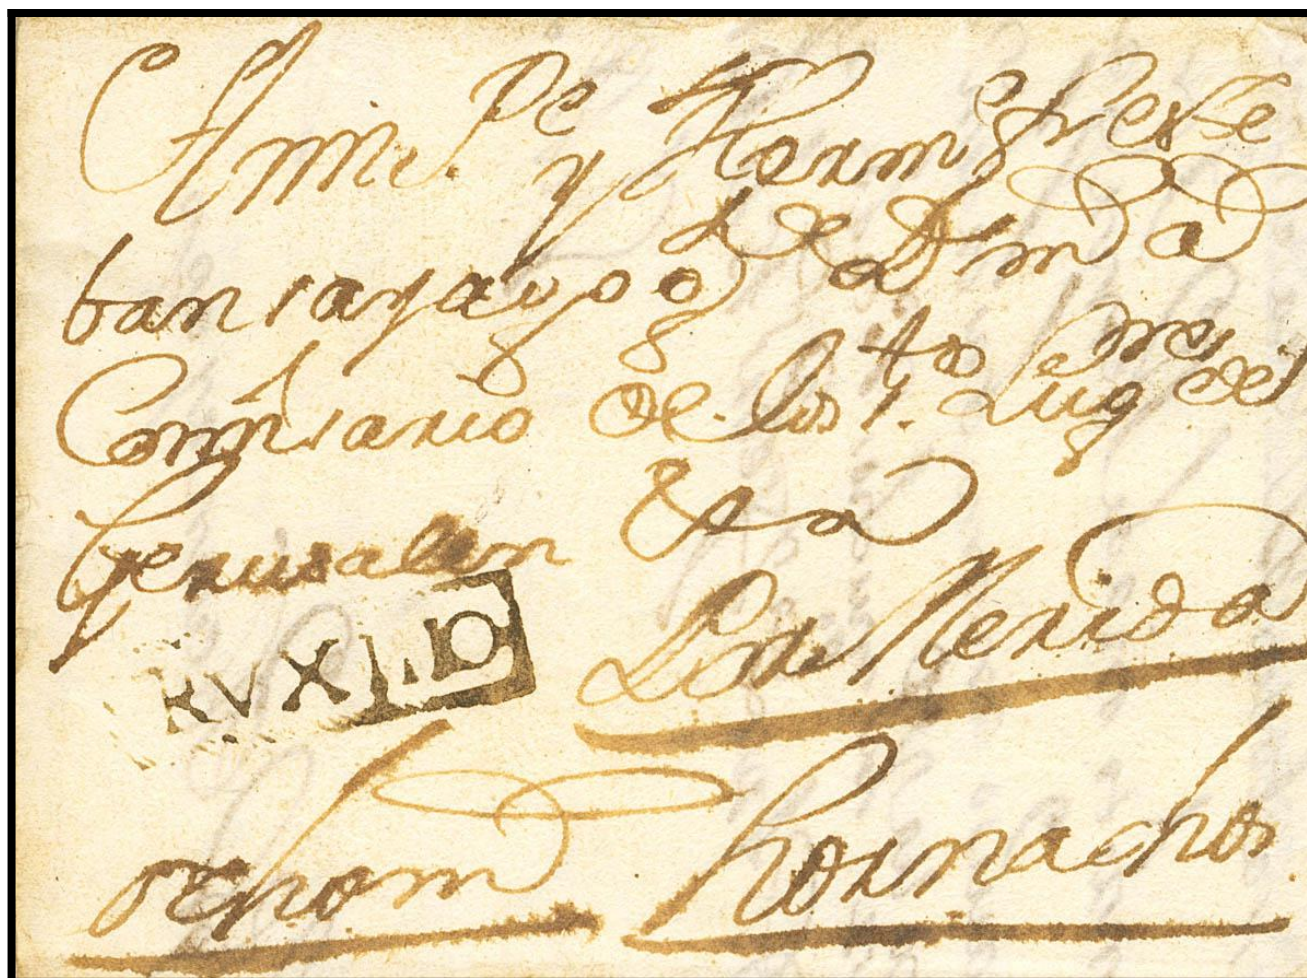 A mi P.e y Herm.o fr este
ban sayago g.de Dm a
Commisario de los s.tos Lug.res de
Jerusalen &a
RVXILLO
Por Merida
Hornachos